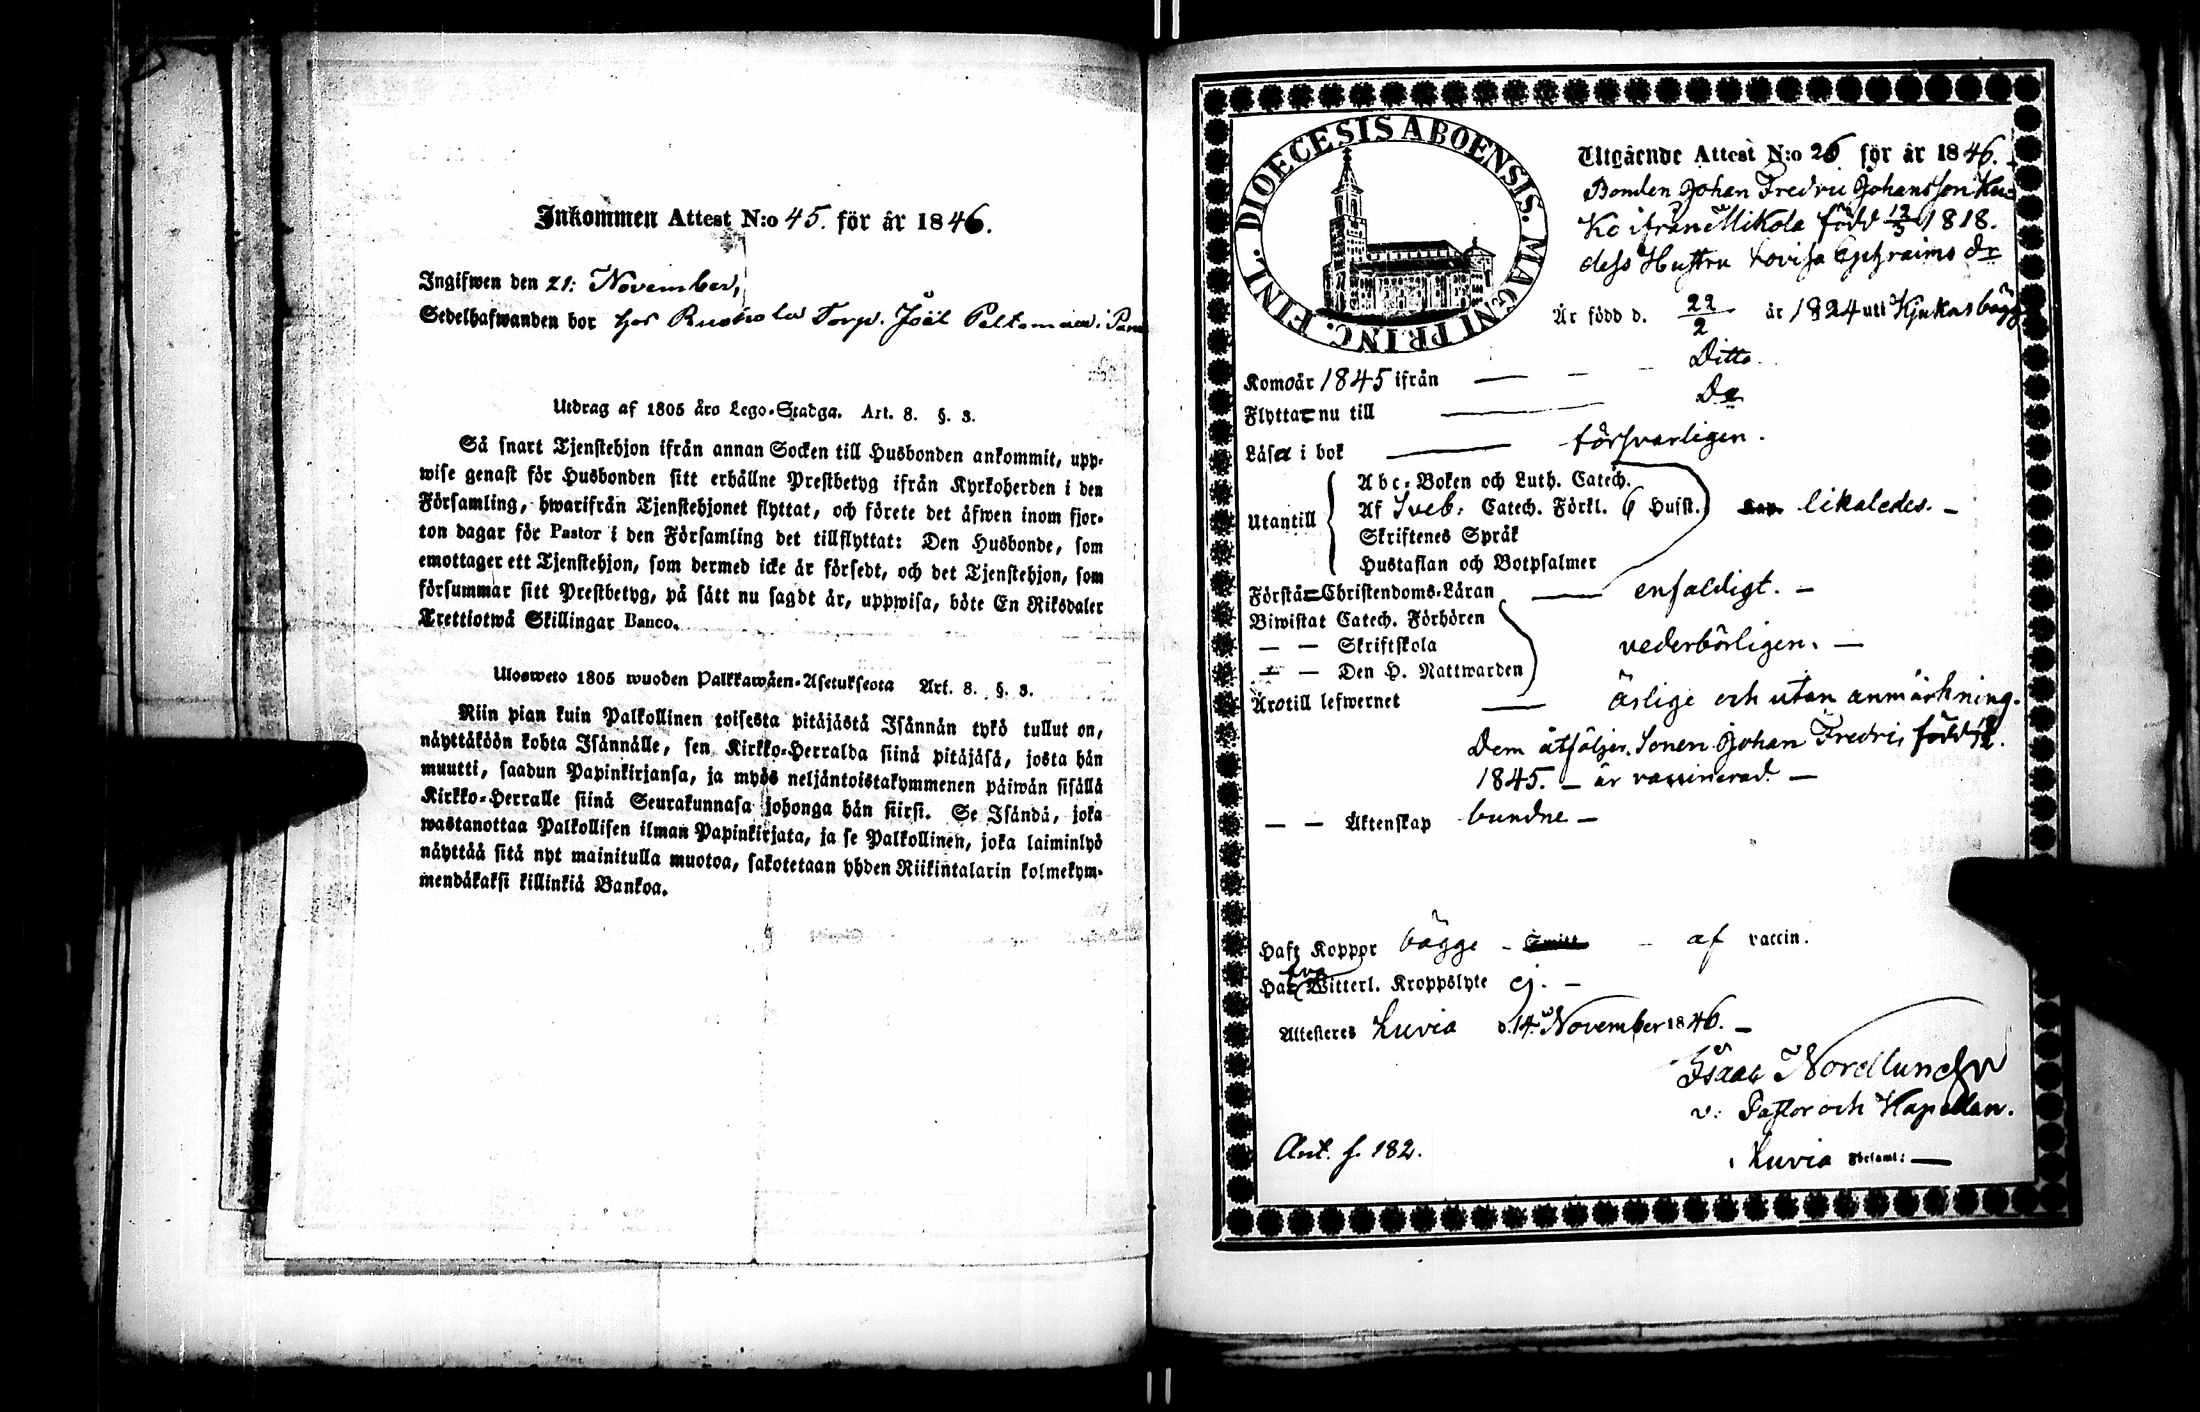 Inkommen Attest N:o 45. för år 1846.
Ingifwen den 21: November,
Sedelhafwanden bor hos Torp. Joël
Utdrag af 1805 års Lego-Stadga. Art. 8. §. 3.
Så snart Tjenstehjon ifrån annan Socken till Husbonden ankommit, upp-
wise genast för Husbonden sitt erhållne Prestbetyg ifrån Kyrkoherden i den
Församling, hwarifrån Tjenstehjonet flyttat, och förete det äfwen inom fjor-
ton dagar för Pastor i den Församling det tillflyttat: Den Husbonde, som
emottager ett Tjenstehjon, som dermed icke är försedt, och det Tjenstehjon, som
försummar sitt Prestbetyg, på sätt nu sagdt är, uppwisa, böte En Riksdaler
Trettiotwå Skillingar Banco.
Ulosweto 1805 wuoden Palkkawäen-Asetuksesta Art. 8. §. 3.
Niin pian kuin Palkollinen toisesta pitäjästä Isännän tykö tullut on,
näyttäköön kohta Isännälle, sen Kirkko-Herralda siinä pitäjäsä, josta hän
muutti, saadun Papinkirjansa, ja myös neljäntoistakymmenen päiwän sisällä
Kirkko-Herralle siinä Seurakunnasa johonga hän siirsi. Se Isändä, joka
wastanottaa Palkollisen ilman Papinkirjata, ja se Palkollinen, joka laiminlyö
näyttää sitä nyt mainitulla muotoa, sakotetaan yhden Riikintalarin kolmekym-
mendäkaksi killinkiä Bankoa.
FINL. DIOECESIS ABOENSIS. MAGNI PRINC.
Utgående Attest N:o 26 för år 1846.
Bonden Johan Fredric Johansson
ifrån Mikola född 1818.
dess Hustru Lovisa Ephraims dr
Är född d. 22/2 år 1824 uti
Komo år 1845 ifrån — — — Ditto.
Flytta nu till — Do
Läsa i bok — försvarligen.
Abc-Boken och Luth. Catech.
Utantill Af Sveb: Catech. Förkl. 6 Hufst. likaledes. —
Skriftenes Språk
Hustaflan och Botpsalmer
Förstå Christendoms-Läran — enfaldigt. —
Biwistat Catech. Förhören
— — Skriftskola vederbörligen. —
— — Den H. Nattwarden
Äro till lefwernet — ärlige och utan anmärkning.
Dem åtföljer Sonen Johan Fredric född
1845. — är vaccinerad. —
— — Äktenskap bundne —
Haft Koppor bägge — — af vaccin.
Ha Witterl. Kroppslyte ej. —
Attesteres Luvia d. 14. November 1846. —
Isaac Nordlund
v: Pastor och Kapellan.
i Luvia Församl: —
Ant. f. 182.